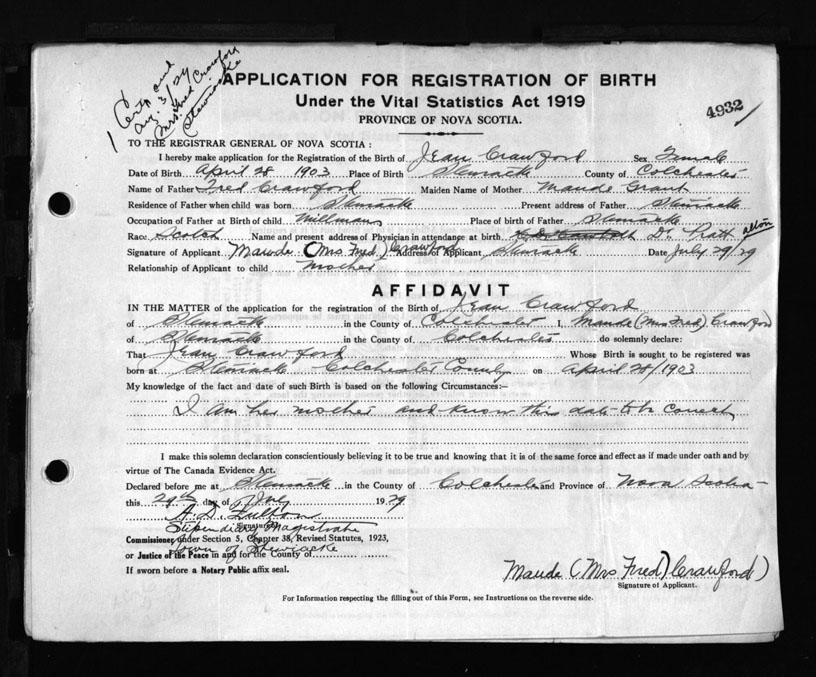 Cert and
Aug. 3/29
Mrs Fred Crawford
Stewiacke
APPLICATION FOR REGISTRATION OF BIRTH
Under the Vital Statistics Act 1919
PROVINCE OF NOVA SCOTIA.
4932
TO THE REGISTRAR GENERAL OF NOVA SCOTIA :
I hereby make application for the Registration of the Birth of Jean Crawford Sex Female
Date of Birth April 28 1903 Place of Birth Stewiacke County of Colchester
Name of Father Fred Crawford Maiden Name of Mother Maude Grant
Residence of Father when child was born Stewiacke Present address of Father Stewiacke
Occupation of Father at Birth of child Millman Place of birth of Father Stewiacke
Race Scotch Name and present address of Physician in attendance at birth Dr. Pritt alton
Signature of Applicant Maude (Mrs Fred) Crawford Address of Applicant Stewiacke Date July 29/29
Relationship of Applicant to child Mother
AFFIDAVIT
IN THE MATTER of the application for the registration of the Birth of Jean Crawford
of Stewiacke in the County of Colchester I, Maude (Mrs Fred) Crawford
of Stewiacke in the County of Colchester do solemnly declare:
That Jean Crawford Whose Birth is sought to be registered was
born at Stewiacke Colchester County on April 28/1903
My knowledge of the fact and date of such Birth is based on the following Circumstances:—
I am her mother and know this date to be correct
I make this solemn declaration conscientiously believing it to be true and knowing that it is of the same force and effect as if made under oath and by
virtue of The Canada Evidence Act.
Declared before me at Stewiacke in the County of Colchester and Province of Nova Scotia
this 29th day of July 1929
A. D. Fulton
Signature
Stipendiary Magistrate
Commissioner under Section 5, Chapter 38, Revised Statutes, 1923,
Town of Stewiacke
or Justice of the Peace in and for the County of
If sworn before a Notary Public affix seal.
Maude (Mrs Fred) Crawford)
Signature of Applicant.
For Information respecting the filling out of this Form, see Instructions on the reverse side.